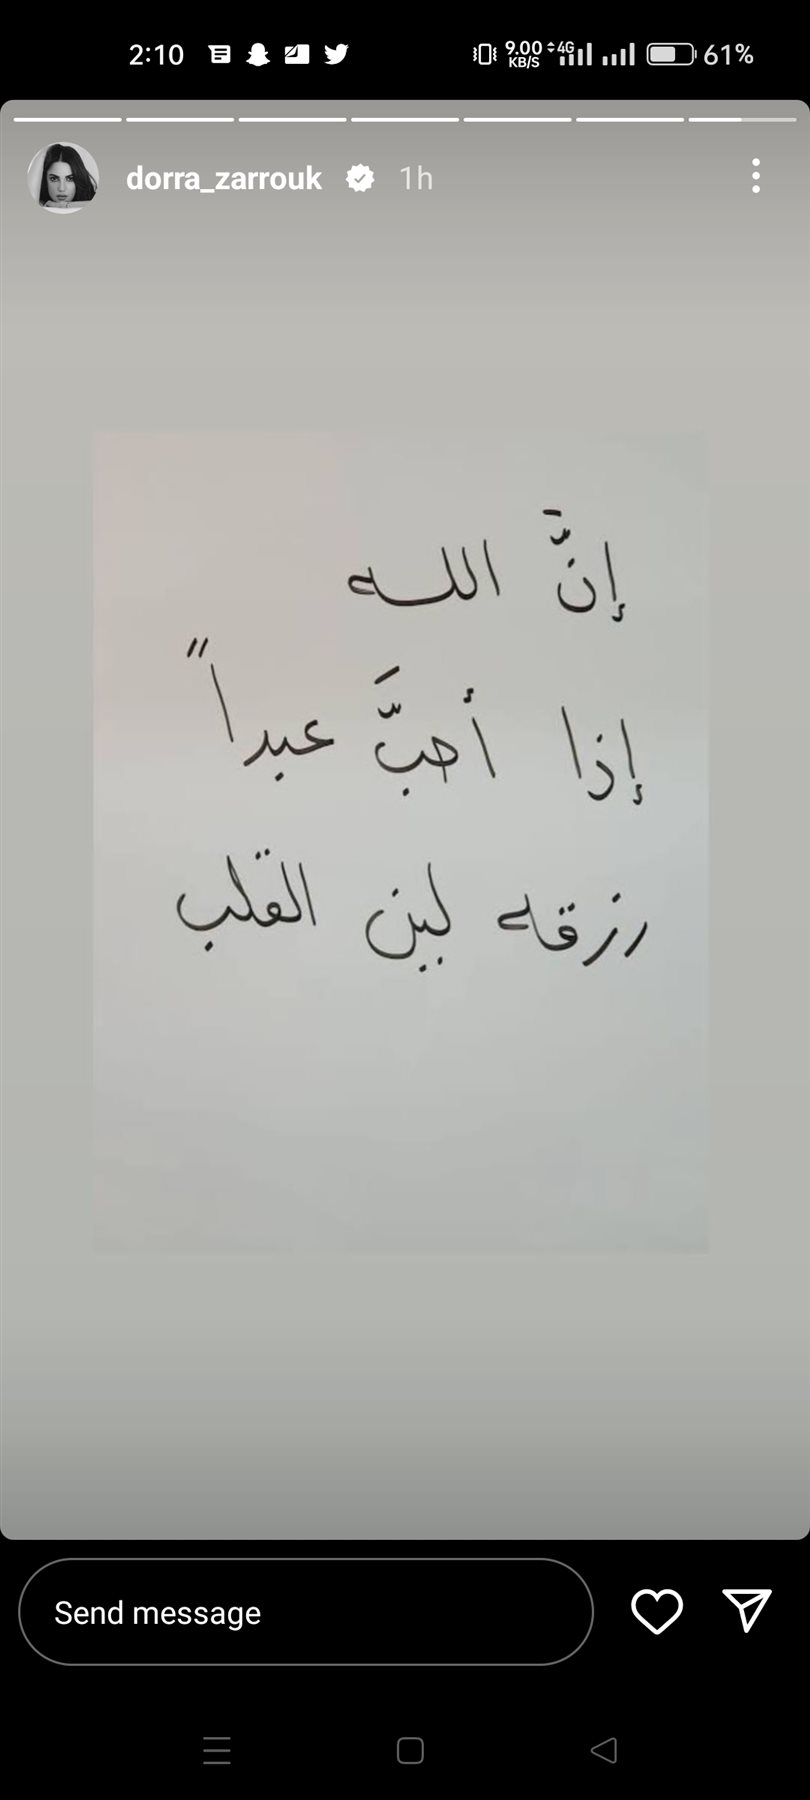 2:10 9.00 KB/S 4G 61%
dorra_zarrouk 1h
إنَّ اللـه
إذا أحبَّ عبداً
رزقه لين القلب
Send message